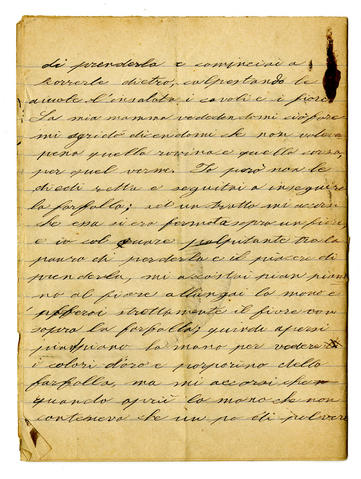 di prenderla e cominciai a
correrle dietro, calpestando le
aiuole l'insalata i cavoli e i fiori
La mia mamma vedendomi ciò fare
mi gridò dicendomi che non valeva
pena quella rovina e quella corsa
per quel verme. Io però non le
diedi retta e seguitai a inseguire
la farfalla; ad un tratto mi accorsi
che essa si era fermata sopra un fiore,
e io col cuore palpitante tra la
paura di perderla e il piacere di
prenderla, mi accostai pian pia
no al fiore allungai la mano e
afferrai strettamente il fiore con
sopra la farfalla, quindi apersi
pian piano la mano per vedere
i colori d'oro e porporino della
farfalla, ma mi accorsi che
quando aprii la mano che non
conteneva che un po di polvere